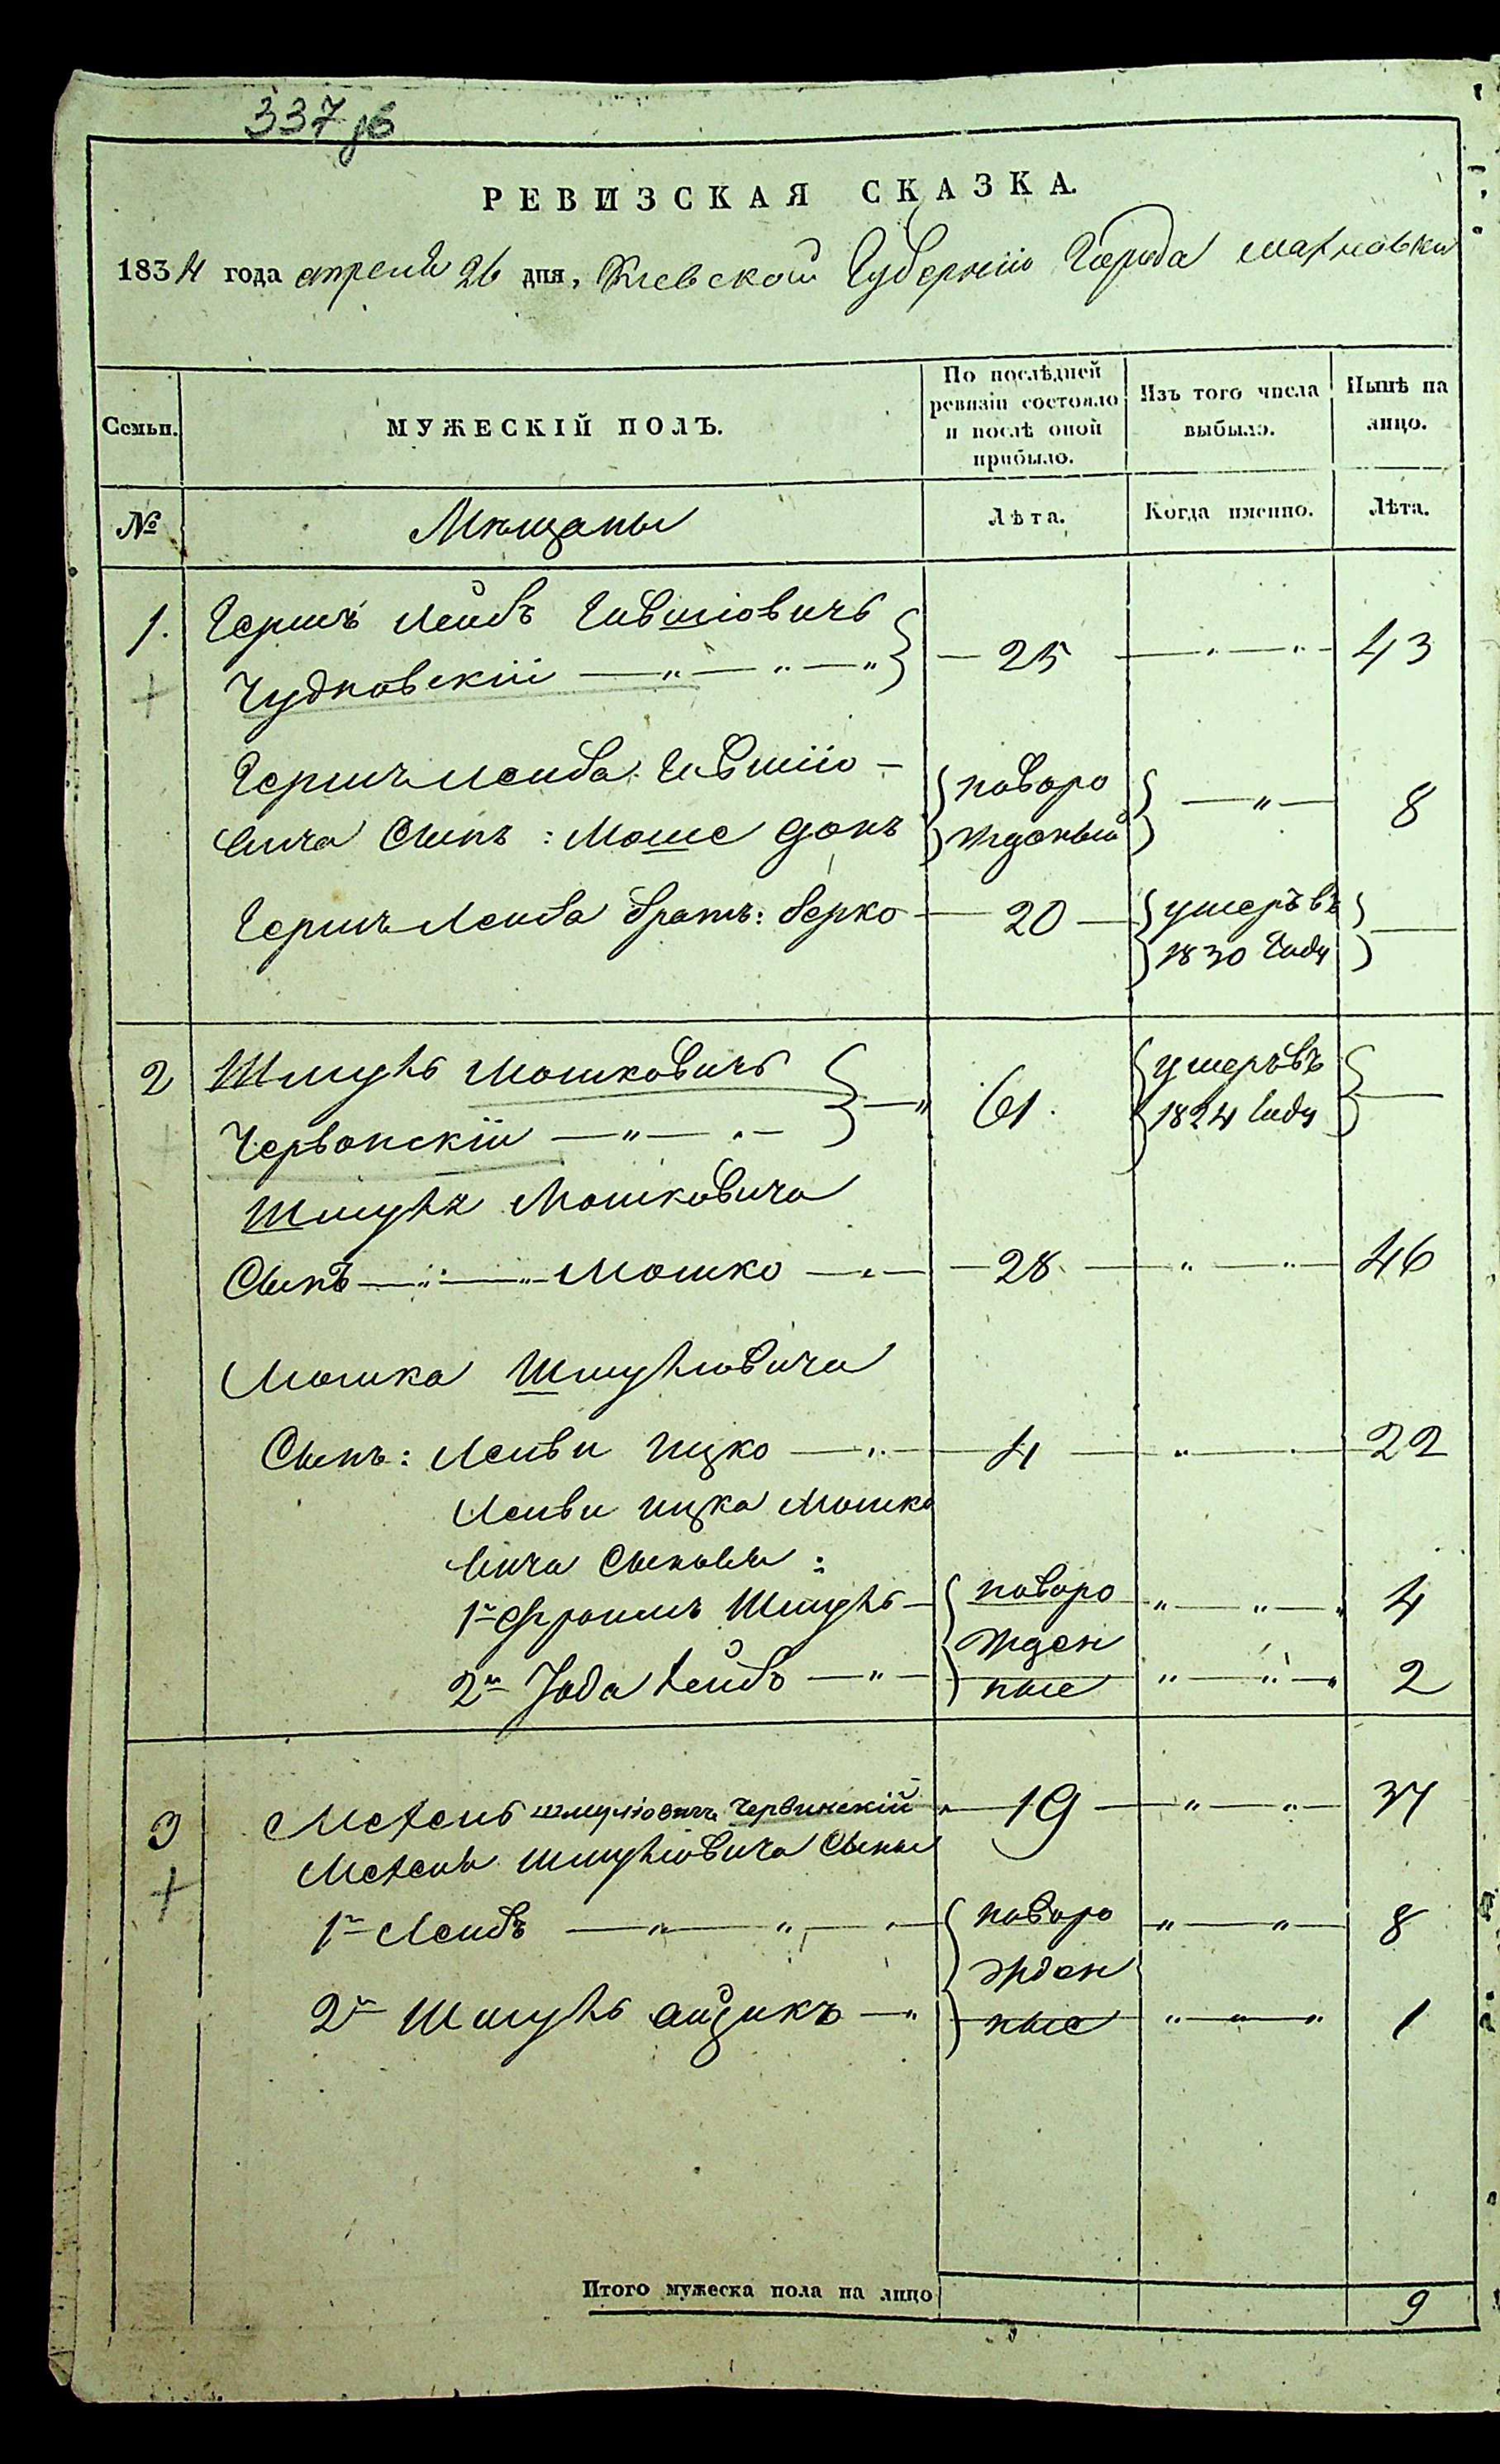 337 об
РЕВИЗСКАЯ СКАЗКА.
1834 года апреля 26 дня, Кіевской Губерніи Города Махновки
Семьи. МУЖЕСКІЙ ПОЛЪ. По послѣдней ревизіи состояло и послѣ оной прибыло. Изъ того числа выбыло. Нынѣ на лицо.
№ Мѣщаны Лѣта. Когда именно. Лѣта.
1. Гершъ Лейбъ Іовшіовичъ
Чудновскій 25 43
Гершъ Лейба Іовшіо-
вича Сынъ: Моше донъ новоро жденый 8
Гершъ Лейба братъ: берко 20 умеръ въ 1830 году
2 Шмуль Мошковичъ
Червонскій 61. умеръ въ 1824 году
Шмуля Мошковича
Сынъ Мошко 28 46
Мошка Шмулиовича
Сынъ: Лейви ицко 4 22
Лейви ицка Мошко
вича Сыновья:
1й Фроимъ Шмуль новоро 4
жден
2й Іода Лейбъ ные 2
3 Мехель шмулiовичъ Червинскій 19 37
Мехеля Шмулиовича Сыны
1й Лейбъ новоро 8
жден
2й Шмуль айзикъ ные 1
Итого мужеска пола на лицо 9